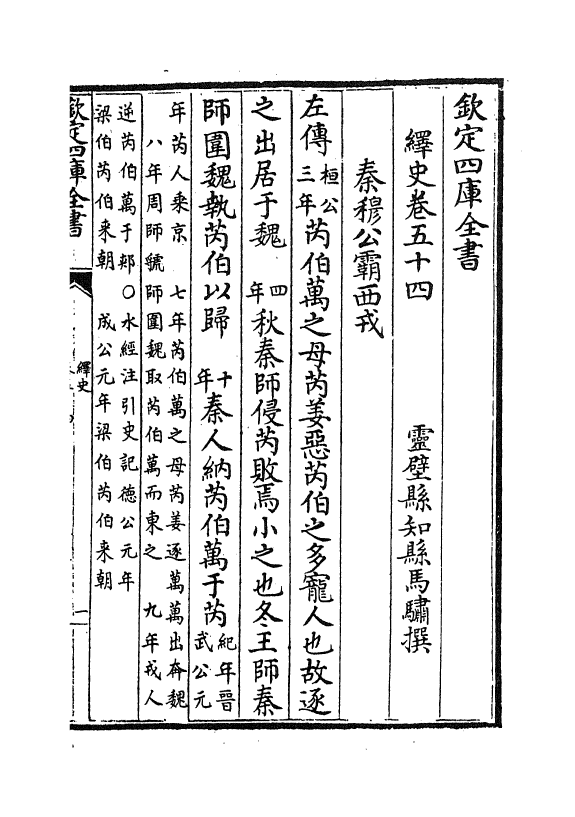 欽定四庫全書
繹史卷五十四 靈壁縣知縣馬驌撰
秦穆公霸西戎
左傳桓公三年芮伯萬之母芮姜惡芮伯之多寵人也故逐
之出居于魏四年秋秦師侵芮敗焉小之也冬王師秦
師圍魏執芮伯以歸十年秦人納芮伯萬于芮紀年晉武公元
年芮人乘京 七年芮伯萬之母芮姜逐萬萬出奔魏
八年周師虢師圍魏取芮伯萬而東之 九年戎人
逆芮伯萬于郟〇水經注引史記德公元年
梁伯芮伯来朝 成公元年梁伯芮伯来朝
欽定四庫全書
繹史
一